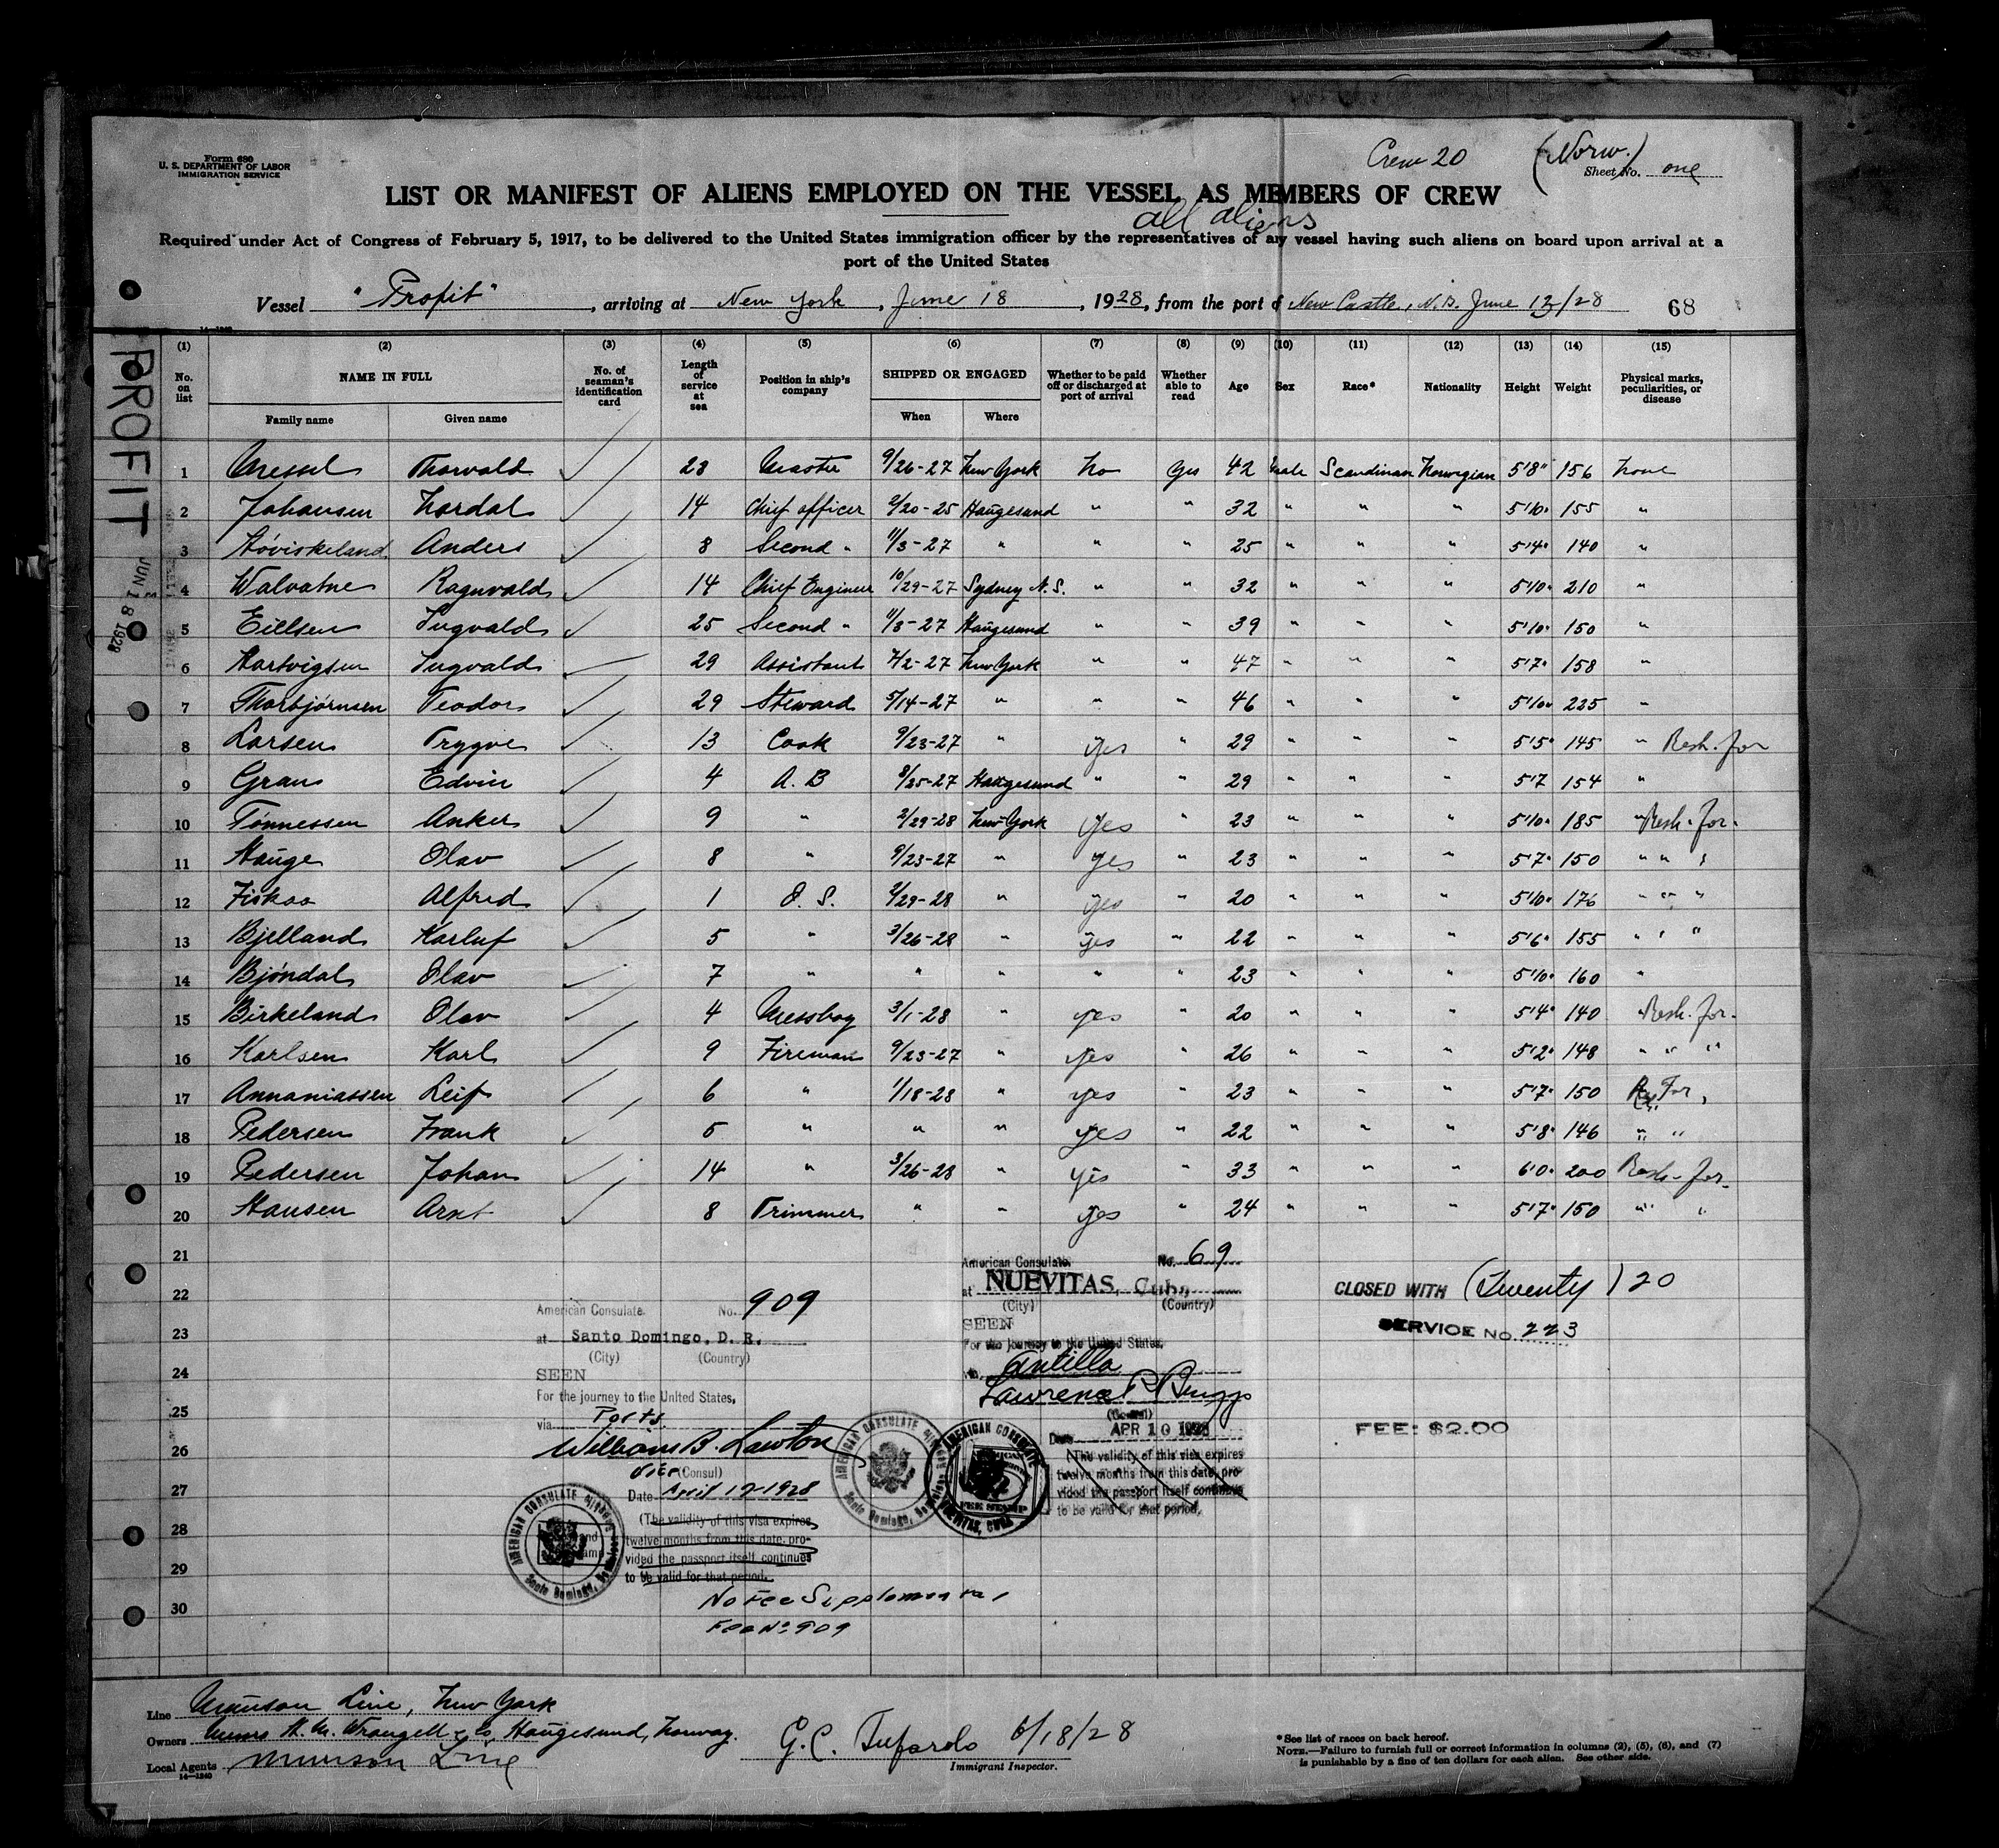 Form 680
U. S. DEPARTMENT OF LABOR
IMMIGRATION SERVICE
Crew 20 (Norw.)
Sheet No. one
LIST OR MANIFEST OF ALIENS EMPLOYED ON THE VESSEL AS MEMBERS OF CREW
all aliens
Required under Act of Congress of February 5, 1917, to be delivered to the United States immigration officer by the representatives of any vessel having such aliens on board upon arrival at a
port of the United States
Vessel "Profit", arriving at New York, June 18, 1928, from the port of New Castle, N.B. June 12/28 68
14-1240
PROFIT
JUN 18 1928
(1) (2) (3) (4) (5) (6) (7) (8) (9) (10) (11) (12) (13) (14) (15)
No. on list NAME IN FULL No. of seaman's identification card Length of service at sea Position in ship's company SHIPPED OR ENGAGED Whether to be paid off or discharged at port of arrival Whether able to read Age Sex Race* Nationality Height Weight Physical marks, peculiarities, or disease
Family name Given name When Where
1 Thorvald 23 Master 9/26-27 New York No Yes 42 Male Scandinavian Norwegian 5'8" 156 None
2 Johansen Nordal 14 Chief officer 2/20-25 Haugesund " " 32 " " " 5'10" 155 "
3 Høviskeland Anders 8 Second " 11/3-27 " " " 25 " " " 5'4" 140 "
4 Walvatne Ragnvald 14 Chief Engineer 10/29-27 Sydney N.S. " " 32 " " " 5'10" 210 "
5 Eillsen Ingvald 25 Second " 11/3-27 Haugesund " " 39 " " " 5'10" 150 "
6 Hartvigsen Ingvald 29 Assistant 7/2-27 New York " " 47 " " " 5'7" 158 "
7 Thorbjørnsen Teodor 29 Steward 5/14-27 " " " 46 " " " 5'10" 225 "
8 Larsen Trygve 13 Cook 9/23-27 " yes " 29 " " " 5'5" 145 " Resh. for
9 Grans Edvin 4 A.B 8/25-27 Haugesund " " 29 " " " 5'7 154 "
10 Tønnessen Anker 9 " 2/29-28 New York yes " 23 " " " 5'10" 185 " Resh. for.
11 Hauge Olav 8 " 9/23-27 " yes " 23 " " " 5'7" 150 " " "
12 Fiskaa Alfred 1 O. S. 2/29-28 " yes " 20 " " " 5'10" 176 " " "
13 Bjelland Karluf 5 " 3/26-28 " yes " 22 " " " 5'6" 155 " " "
14 Bjöndal Olav 7 " " " " " 23 " " " 5'10" 160 "
15 Birkeland Olav 4 Messboy 3/1-28 " yes " 20 " " " 5'4" 140 " Resh. for.
16 Karlsen Karl 9 Fireman 9/23-27 " yes " 26 " " " 5'2" 148 " " "
17 Annaniassen Leif 6 " 1/18-28 " yes " 23 " " " 5'7" 150 For
18 Pedersen Frank 5 " " " yes " 22 " " " 5'8" 146 " "
19 Pedersen Johan 14 " 3/26-28 " yes " 33 " " " 6'0" 200 Resh. for.
20 Hansen Arnt 8 Trimmer " " yes " 24 " " " 5'7" 150 " "
21
22
23
24
25
26
27
28
29
30
American Consulate. No. 909
at Santo Domingo, D. R.
(City) (Country)
SEEN
For the journey to the United States,
via Ports
William B. Lawton
Vice (Consul)
Date April 17 1928
(The validity of this visa expires
twelve months from this date, pro-
vided the passport itself continues
to be valid for that period.
No Fee Supplemental
Fee Nº 909
American Consulate. No. 69
at NUEVITAS, Cuba
(City) (Country)
SEEN
For the journey to the United States,
via Antilla
Lawrence P. Briggs
(Consul)
Date APR 10 1928
(The validity of this visa expires
twelve months from this date, pro-
vided the passport itself continues
to be valid for that period.
AMERICAN CONSULATE
AMERICAN CONSULATE
FEE STAMP
NUEVITAS, CUBA
AMERICAN CONSULATE
CLOSED WITH (Twenty) 20
SERVICE NO. 223
FEE: $2.00
Line Munson Line, New York
Owners Messrs H. M. Wrangell & Co Haugesund, Norway.
Local Agents Munson Line
14-1240
G. C. Tufarolo 6/18/28
Immigrant Inspector.
*See list of races on back hereof.
NOTE.—Failure to furnish full or correct information in columns (2), (5), (6), and (7)
is punishable by a fine of ten dollars for each alien. See other side.